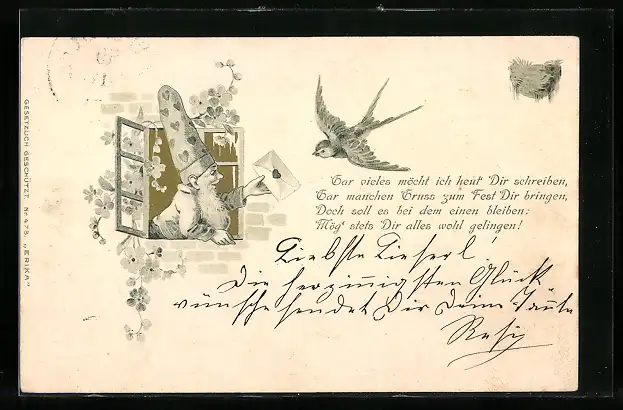 GESETZLICH GESCHÜTZT. Nr. 478. „ERIKA“
Gar vieles möcht ich heut' Dir schreiben,
Gar manchen Gruss zum Fest Dir bringen,
Doch soll es bei dem einen bleiben:
Mög' stets Dir alles wohl gelingen!
Liebste Lieserl!
Die herzinnigsten Glück
wünsche sendet Dir Deine Tante
Resi